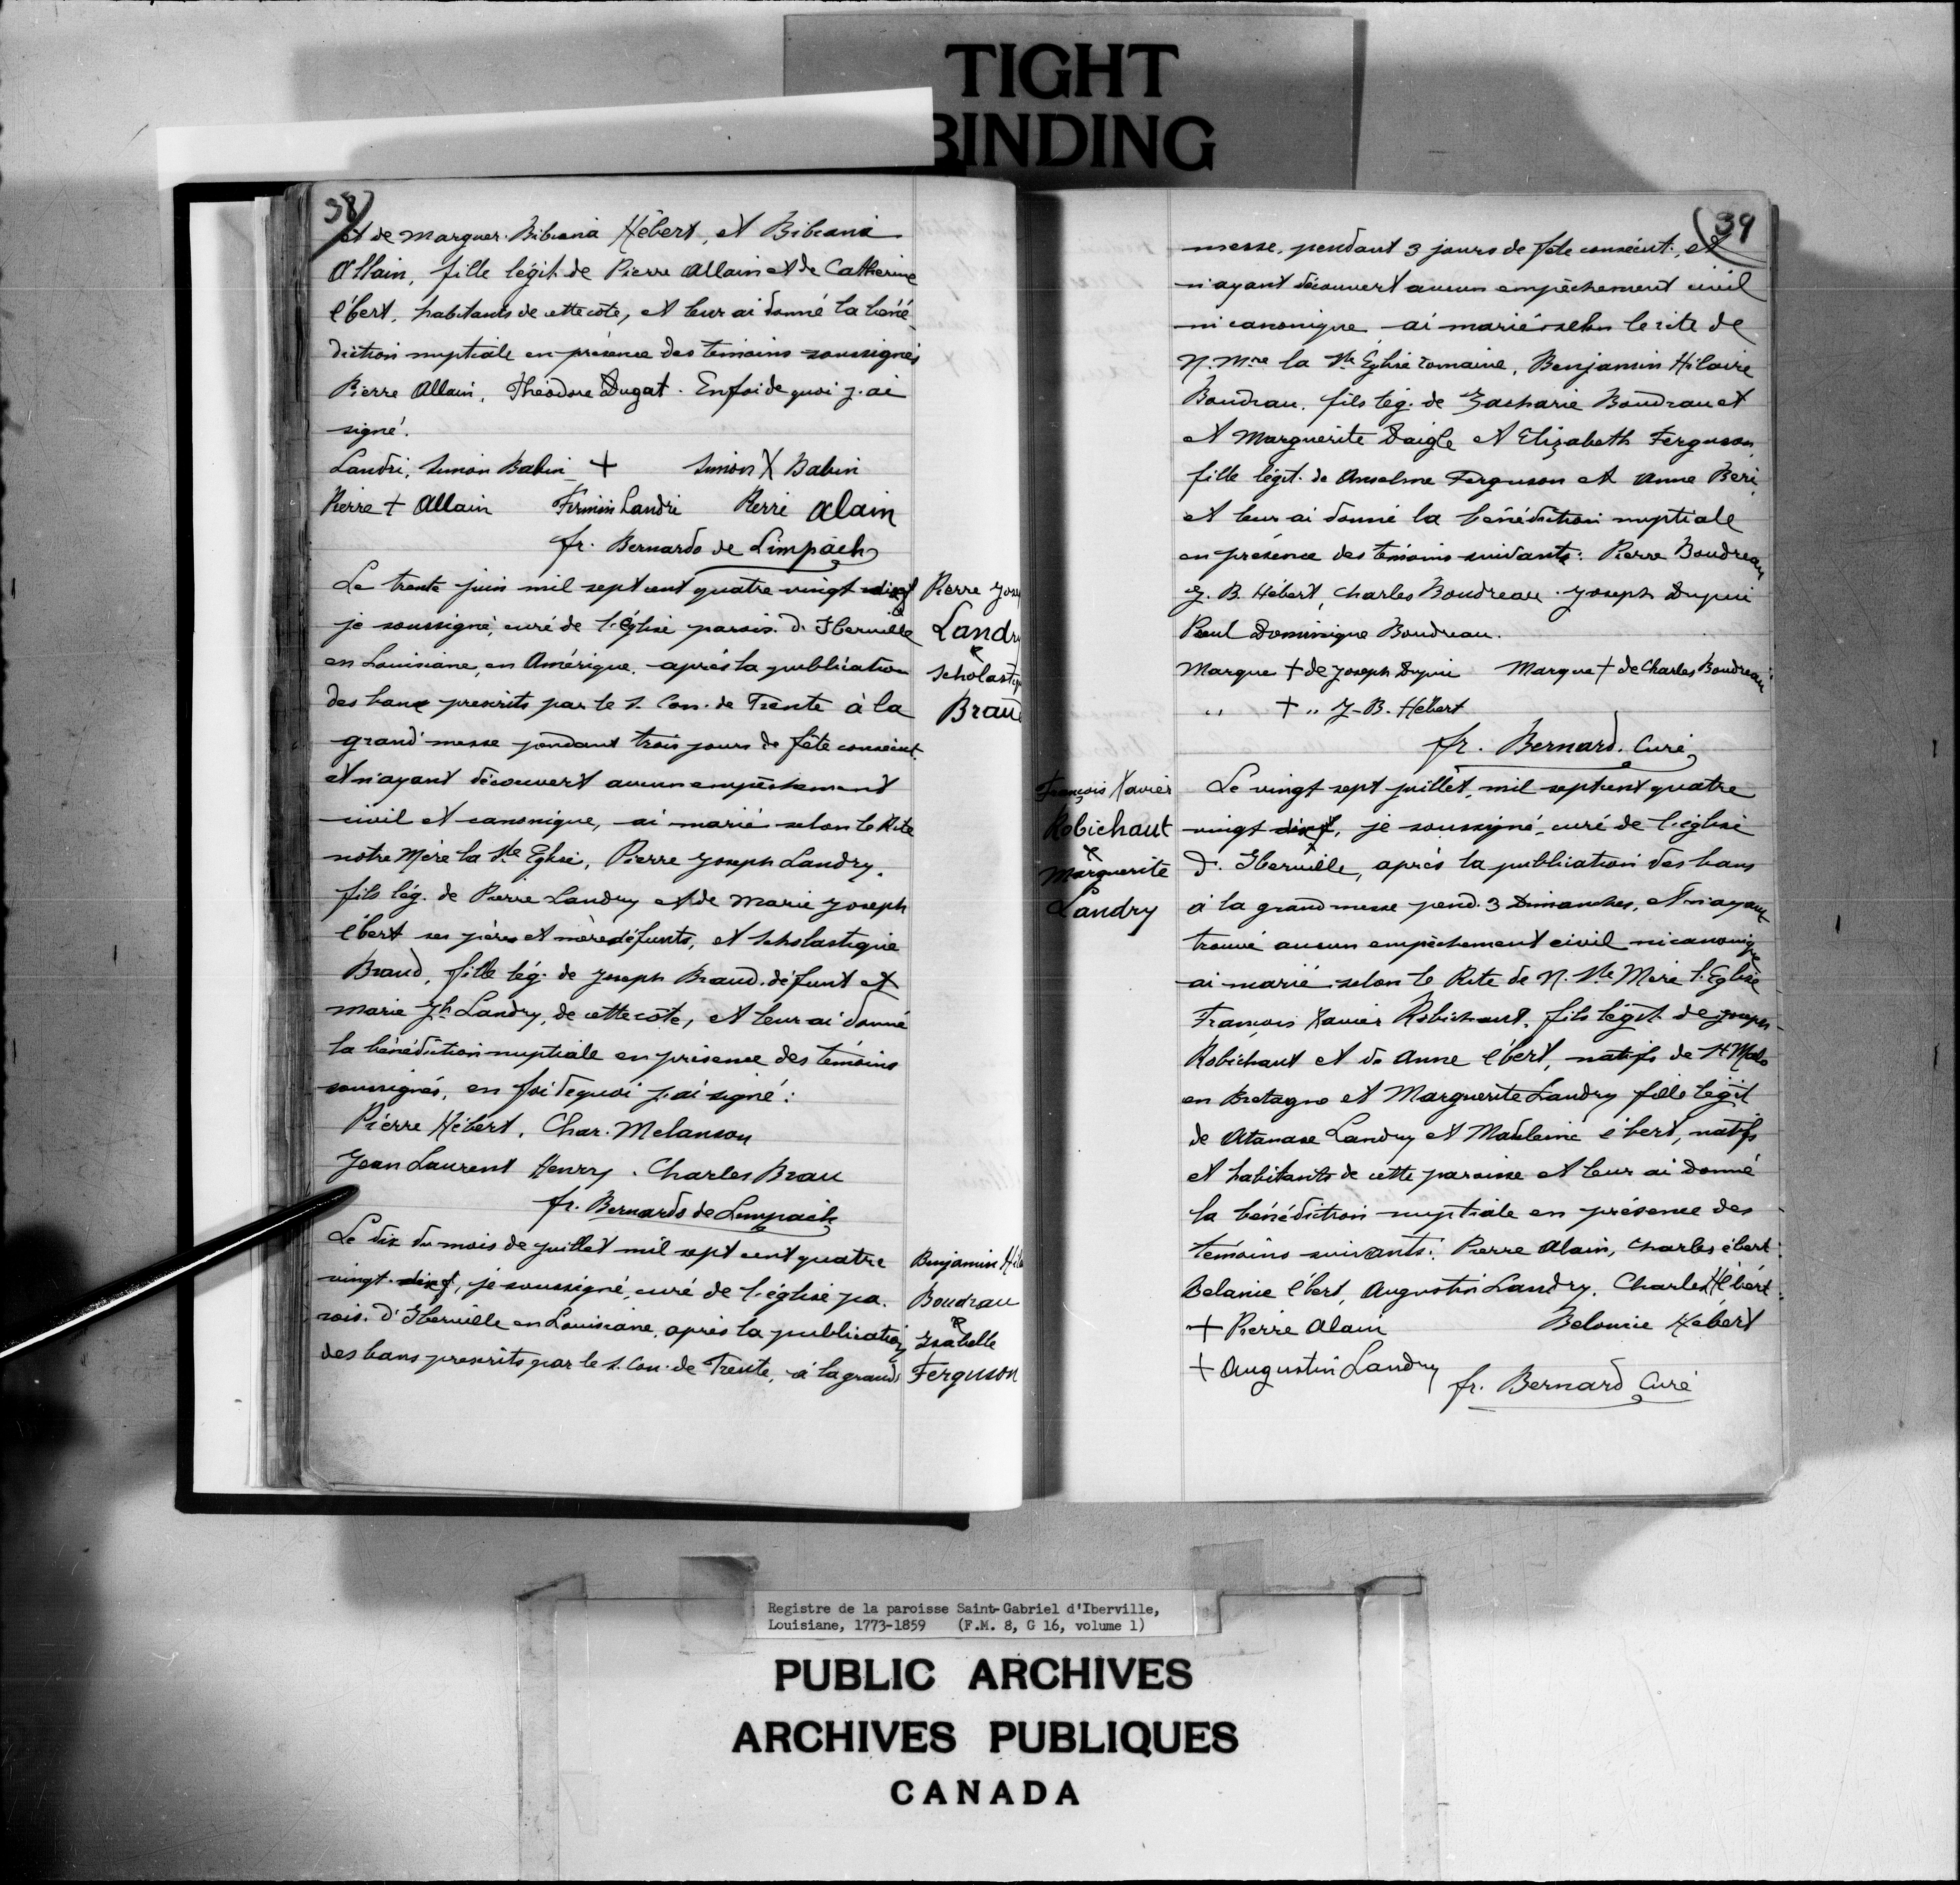 TIGHT
BINDING
38
et de Marguer. Bibiana Hébert, et Bibiana
Allain, fille légit. de Pierre Allain et de Catherine
Ébert, habitants de cette côte, et leur ai donné la béné
diction nuptiale en présence des témoins soussignés
Pierre Allain, Théodore Dugat. En foi de quoi j'ai
signé.
Landri, Simon Babin + Simon X Babin
Pierre + Allain Firmin Landri Pierre Alain
fr. Bernardo de Limpach
Le trente juin mil sept cent quatre vingt
je soussigné, curé de l'église parois. d'Iberville
en Louisiane, en Amérique, après la publication
des bans prescrits par le S. Con. de Trente à la
grand'messe pendant trois jours de fête consécut.
et n'ayant découvert aucun empêchement
civil et canonique, ai marié selon le Rite
notre Mère la Ste Eglise, Pierre Joseph Landry,
fils lég. de Pierre Landry et de Marie Joseph
Ébert ses père et mère défunts, et Scholastique
Braud, fille lég. de Joseph Braud défunt et
Marie Jh Landry, de cette côte, et leur ai donné
la bénédiction nuptiale en présence des témoins
soussignés, en foi de quoi j'ai signé:
Pierre Hébert, Char. Melanson
Jean Laurent Henry. Charles Brau
fr. Bernardo de Limpach
Le dix du mois de juillet mil sept cent quatre
vingt, je soussigné, curé de l'église pa.
rois. d'Iberville en Louisiane, après la publication
des bans prescrits par le S. Con. de Trente, à la grand
Pierre Jose
Landry
&
Scholastiq
Braud
Benjamin Hil
Boudrau
&
Isabelle
Ferguson
39
messe, pendant 3 jours de fête consécut., et
n'ayant découvert aucun empêchement civil
ni canonique ai marié selon le rite de
N. Mre la Ste Eglise romaine, Benjamin Hilaire
Boudrau, fils lég. de Zacharie Boudrau et
et Marguerite Daigle et Elizabeth Ferguson,
fille légit. de Anselme Ferguson et Anne Beri,
et leur ai donné la bénédiction nuptiale
en présence des témoins suivants: Pierre Boudreau
J. B. Hébert, Charles Boudreau. Joseph Dupui
Paul Dominique Boudreau.
Marque + de Joseph Dupui Marque + de Charles Boudreau
" + " J-B. Hébert
fr. Bernard. Curé
François Xavier
Robichaut
&
Marguerite
Landry
Le vingt sept juillet, mil sept cent quatre
vingt, je soussigné, curé de l'église
d'Iberville, après la publication des bans
à la grand messe pend. 3 Dimanches, et n'ayant
trouvé aucun empêchement civil ni canonique
ai marié selon le Rite de N. Ste Mère l'Eglise
François Xavier Robichaut, fils légit. de Joseph
Robichaut et de Anne Ébert, natifs de St Malo
en Bretagne et Marguerite Landry fille légit
de Atanase Landry et Madeleine Ébert, natifs
et habitants de cette paroisse et leur ai donné
la bénédiction nuptiale en présence des
témoins suivants: Pierre Alain, Charles ébert
Belanie Ébert, Augustin Landry. Charles Hébert
+ Pierre Alain Belonie Hébert
+ Augustin Landry
fr. Bernard Curé
Registre de la paroisse Saint-Gabriel d'Iberville,
Louisiane, 1773-1859 (F.M. 8, G 16, volume 1)
PUBLIC ARCHIVES
ARCHIVES PUBLIQUES
CANADA